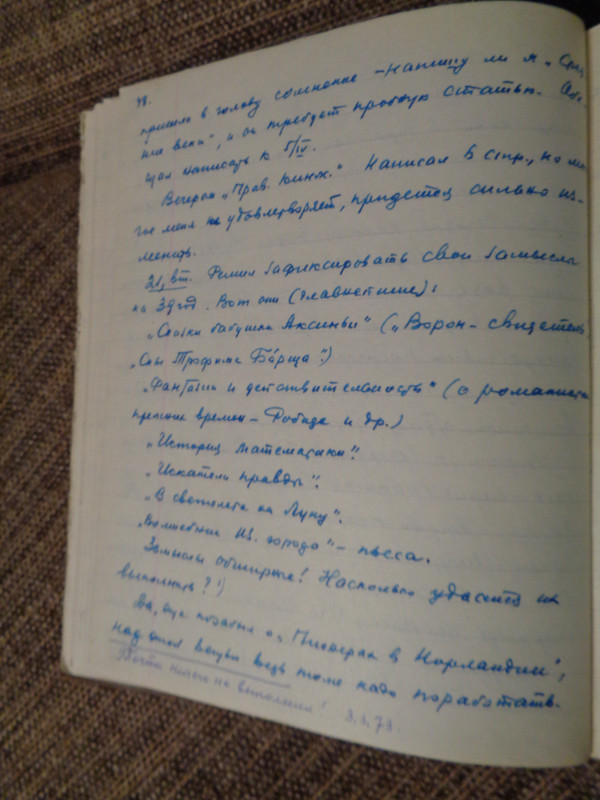 78.
пришло в голову сомнение – напишу ли я „Сред
ние века", и он требует пробную статью. Обе-
щал написать к 5/IV.
Вечером „Прав. книж." Написал 6 стр., но мно-
гое меня не удовлетворяет, придется сильно из-
менить.
21, вт. Решил зафиксировать свои замыслы
на 39 год. Вот они (главнейшие):
„Сказки бабушки Аксиньи" („Ворон-свидетель",
„Сны Трофима Ба́рща".)
„Фантазии и действительность" (о романистах
прежних времен – Робида и др.)
„История математики".
„Искатели правды".
„В самолете на Луну".
„Волшебник Из. города" – пьеса.
Замыслы обширные! Насколько удастся их
выполнить?!)
Да, еще позабыл о „Пионерах в Норландии",
над этой вещью ведь тоже надо поработать.
Почти ничего не выполнил! 3.I.73.